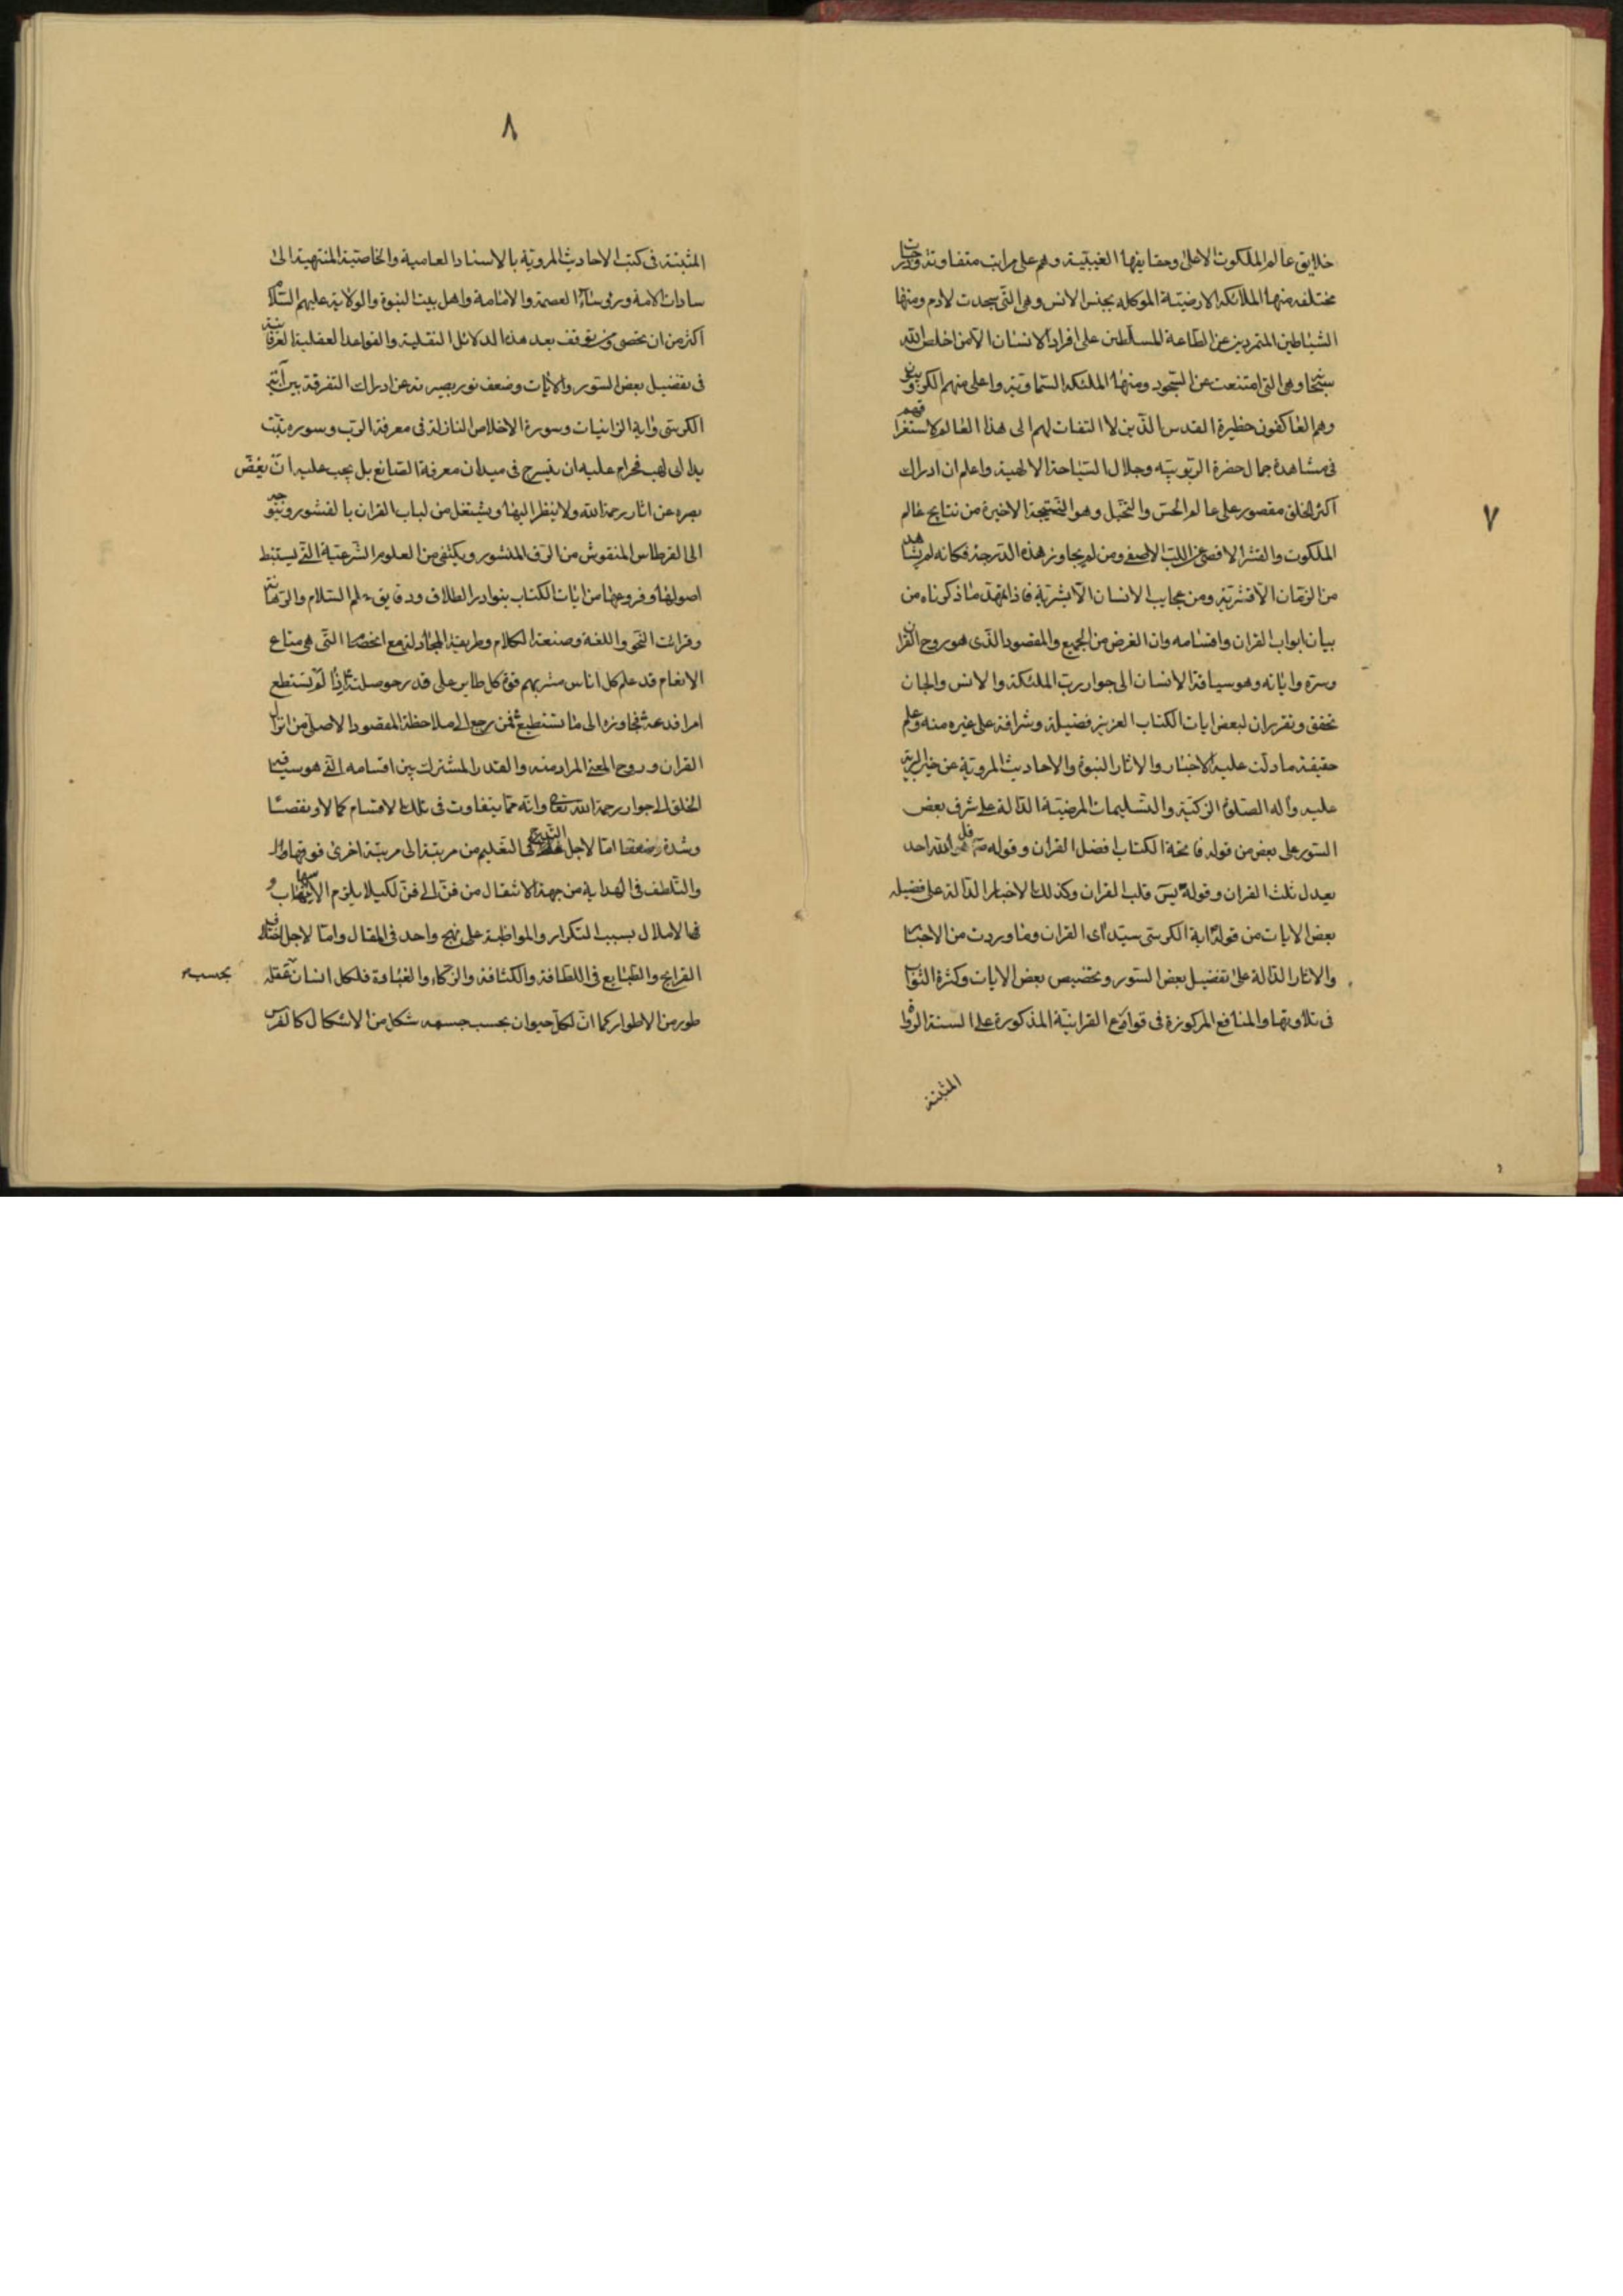 ٧
خلايق عالم الملكوت الاعلى وحقايقها الغيبية وهم على مراتب متفاوتة ودرجات
مختلفه منها الملائكه الارضيّة الموكله بجنس الانس وهى التى سجدت لادم ومنها
الشياطين المتمردين عن الطاعة المسلطين على افراد الانسان الا من اخلص الله
وهى التى امتنعت عن السّجود ومنها الملئكه السّماويّة واعلى منهم الكروبيون
وهم العاكفون حظيرة القدس الذين لا التفات لهم الى هذا العالم لاستغراقهم
فى مشاهدة جمال حضرة الربوبيّه وجلال السّباحة الالهية واعلم ان ادراك
اكثر الخلق مقصور على عالم الحسّ والتخيّل وهو النّتيجة الاخيرة من نتايج عالم
الملكوت والقشر الاقصى عن اللبّ الاصفى ومن لم يجاوز هذه الدّرجة فكانه لم يشاهد
من الرّمّان الّا قشريّه ومن عجايب الانسان الّا بشريّه فاذا تمهّد ما ذكرناه من
بيان ابواب القران واقسامه وان الغرض من الجميع والمقصود الذى هو روح القران
وسرّه واياته وهو سياقة الانسان الى جوار ربّ الملئكة والانس والجان
تحقق وتقرر ان لبعض ايات الكتاب العزيز فضيلة وشرافة على غيره منه وعلم
حقيقة ما دلّت عليه الاخبار والاثار النبوة والاحاديث المروية عن خير البريّة
عليه وآله الصّلوة الزكيّة والتّسليمات المرضيّة الدّالة على شرف بعض
السّور على بعض من قوله فاتحة الكتاب افضل القران وقوله ص قل هو الله احد
يعدل ثلث القران وقوله يسۤ قلب القران وكذلك الاخبار الدّالة على فضيله
بعض الايات من قوله اية الكرسّى سيّد اى القران وما وردت من الاخبار
والاثار الدّالة على تفضيل بعض السّور وتخصيص بعض الايات وكثرة الثواب
فى تلاوتها والمنافع المركوزة فى قوارع القرانيّة المذكورة على السنة الرواة
المثبتة
٨
المثبتة فى كتب الاحاديث المروّية بالاسناد العامية والخاصّية المنتهية الى
سادات الامة ورؤساء العصمة والامامة واهل بيت النبوة والولاية عليهم السّلام
اكثر من ان تحصى ومن توقف بعد هذه الدلائل النقلية والقواعد العقلية العرفانية
فى تفضيل بعض السّور والايات وضعف نور بصيرته عن ادراك التفرقة بين آية
الكرسّى واية الزانيات وسورة الاخلاص النازلة فى معرفة الربّ وسوره تبّت
يدا ابى لهب فحرام عليه ان يسرح فى ميدان معرفة الصّانع بل يجب عليه انّ يغضّ
بصره عن اثار رحمة الله ولا ينظر اليها ويشتغل من لباب القران بالقشور ويتوجه
الى القرطاس المنقوش من الرّق المنشور ويكتفى من العلوم الشّرعيّة التّى يستنبط
اصولها وفروعها من ايات الكتاب بنوادر الطلاق ودقايق السّلم والرّهانة
وقرائت النّحو واللغة وصنعة الكلام وطريقة المجادلة مع الخصام التّى هى متاع
الانعام قد علم كل اناس مشربهم قوة كل طاير على قدر حوصلته اذا لم تستطع
امرا فدعه وجاوزه الى ما تستطيع ثمّ من رجع الى ملاحظة المقصود الاصلى من انزال
القران وروح المعنى المراد منه والقدر المشترك بين اقسامه الّتى هو سياقة
الخلق الى جوار رحمة الله تعالى وانّه ممّا يتفاوت فى تلك الاقسام كمالا ونقصاً
وشدة وضعفا امّا لاجل التدريج فى التعليم من مرتبة الى مرتبة اخرى فوقها
والتّلطف فى الهداية من جهة الانتقال من فنّ الى فنّ لكيلا يلزم
الاملال بسبب التكرار والمواظبة على نهج واحد فى المقال وامّا لاجل اختلاف
القرايح والطبايع فى اللطافة والكثافة والزكاء والغباوة فلكل انسان بحسب عقله
طور من الاطوار كما انّ لكلّ حيوان بحسب جسمه شكل من الاشكال كالفرس